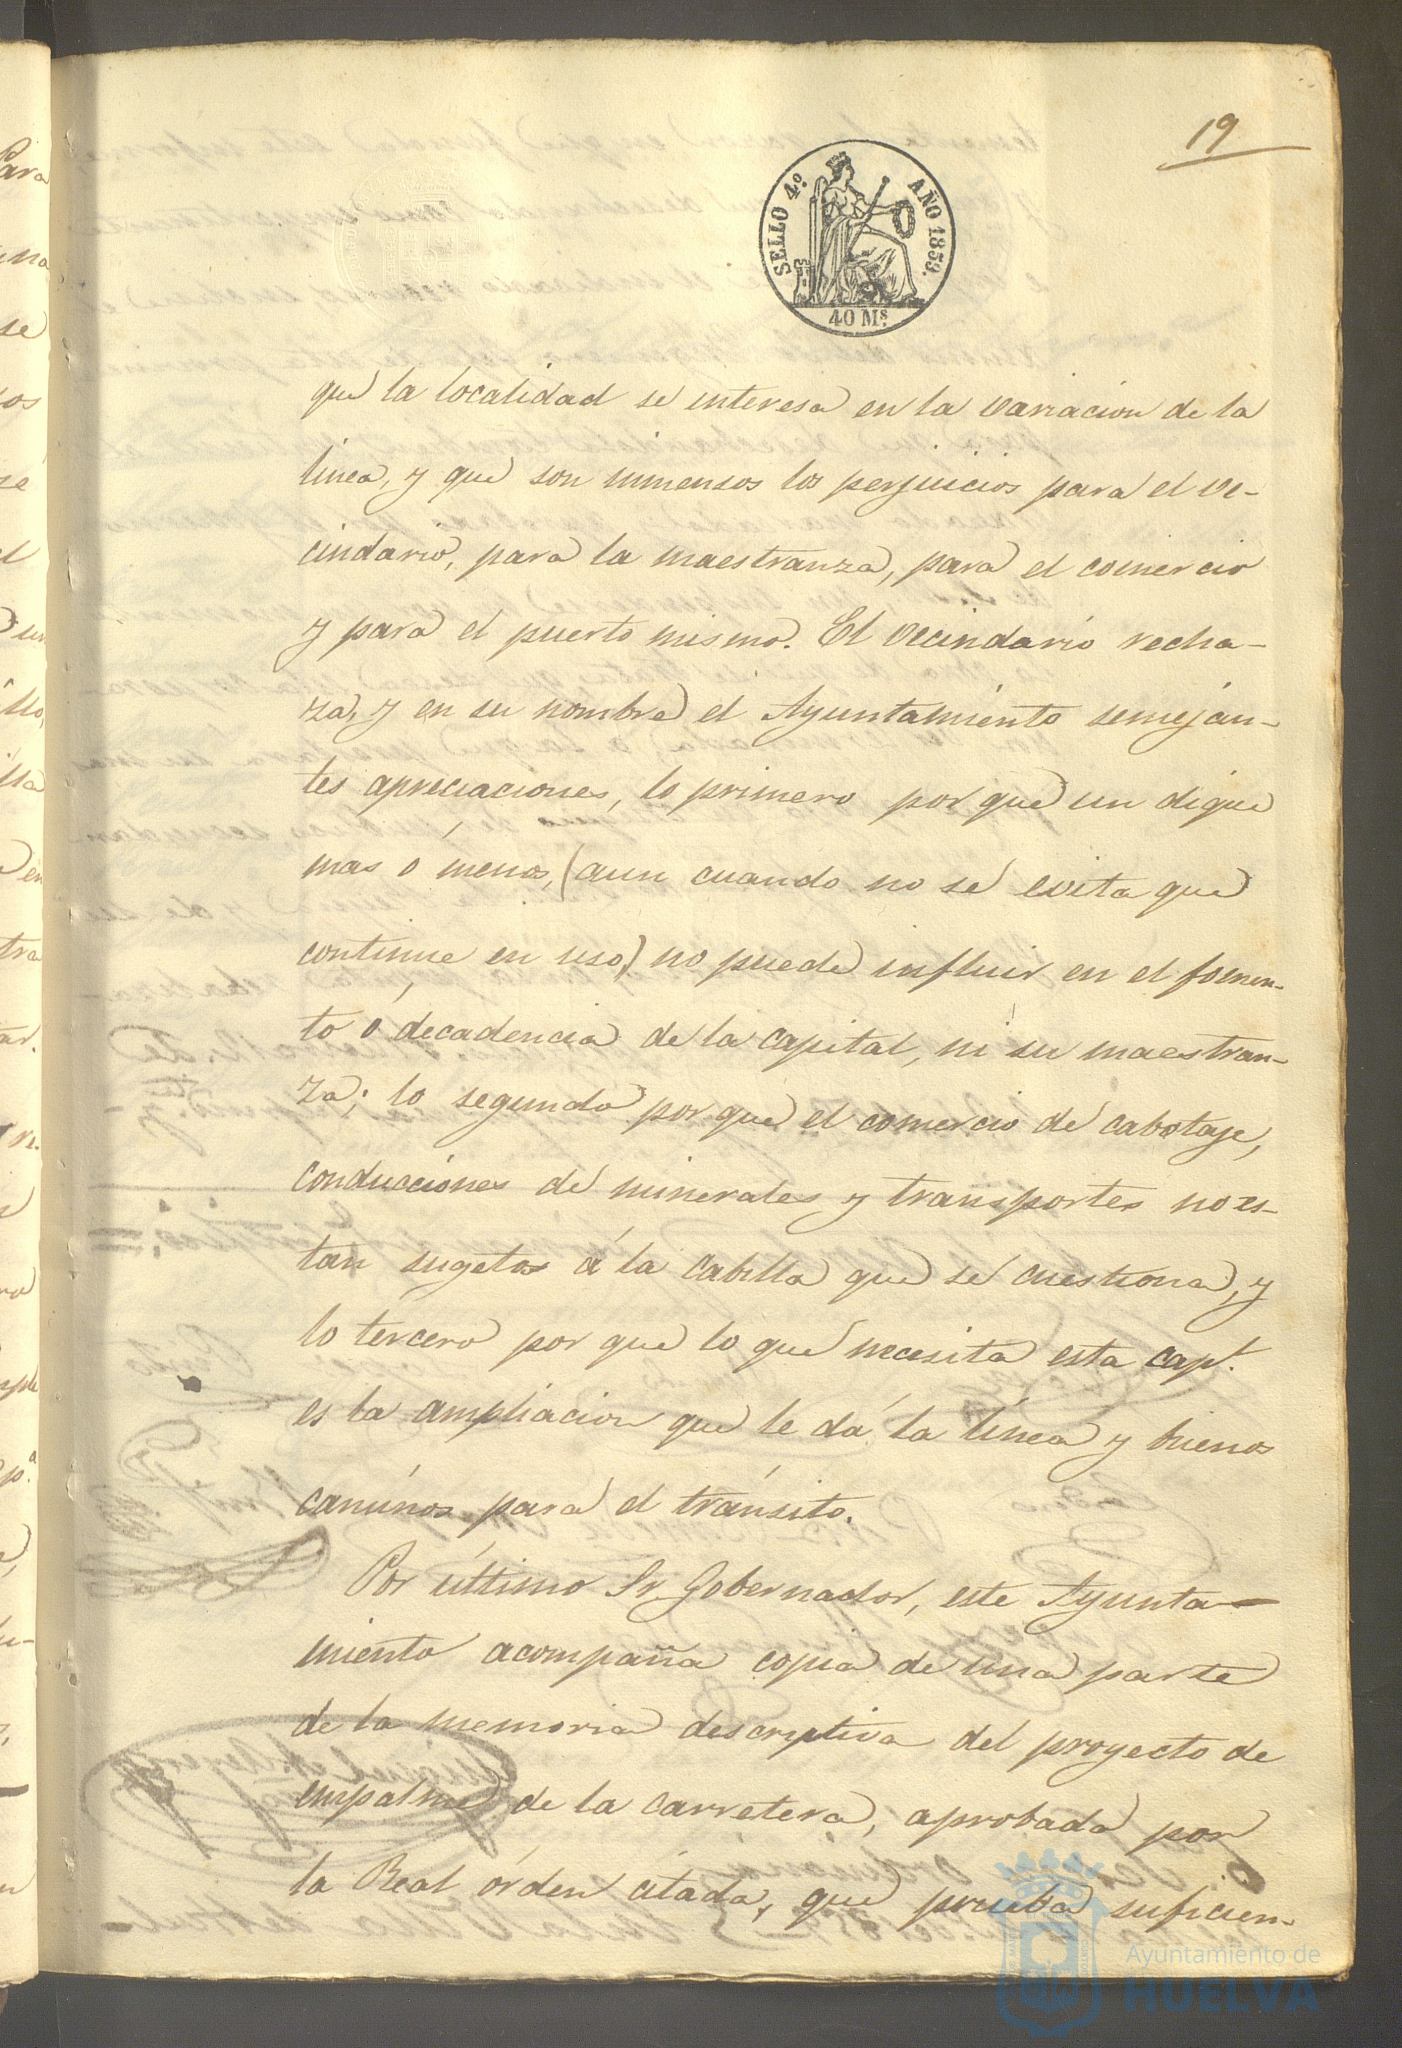 19
SELLO 4.º AÑO 1859.
40 Mˢ
que la localidad se interesa en la variacion de la
linea, y que son inmensos los perjuicios para el ve-
cindario, para la maestranza, para el comercio
y para el puerto mismo. El vecindario recha-
za, y en su nombre el Ayuntamiento semejan-
tes apreciaciones, lo primero por que un dique
mas ó menos, (aun cuando no se evita que
continue en uso,) no puede influir en el fomen-
to ó decadencia de la capital, ni su maestran-
za; lo segundo por que el comercio de cabotaje,
conducciones de minerales y transportes no es-
tan sugetos á la Cabilla que se cuestiona, y
lo tercero por que lo que necesita esta capˡ.
es la ampliacion que le dá la línea y buenos
caminos para el tránsito.
Por último Sr. Gobernador, este Ayunta-
miento acompaña copia de una parte
de la memoria descriptiva del proyecto de
empalme de la carretera, aprobada por
la Real órden citada, que prueba suficien-
Ayuntamiento de
HUELVA